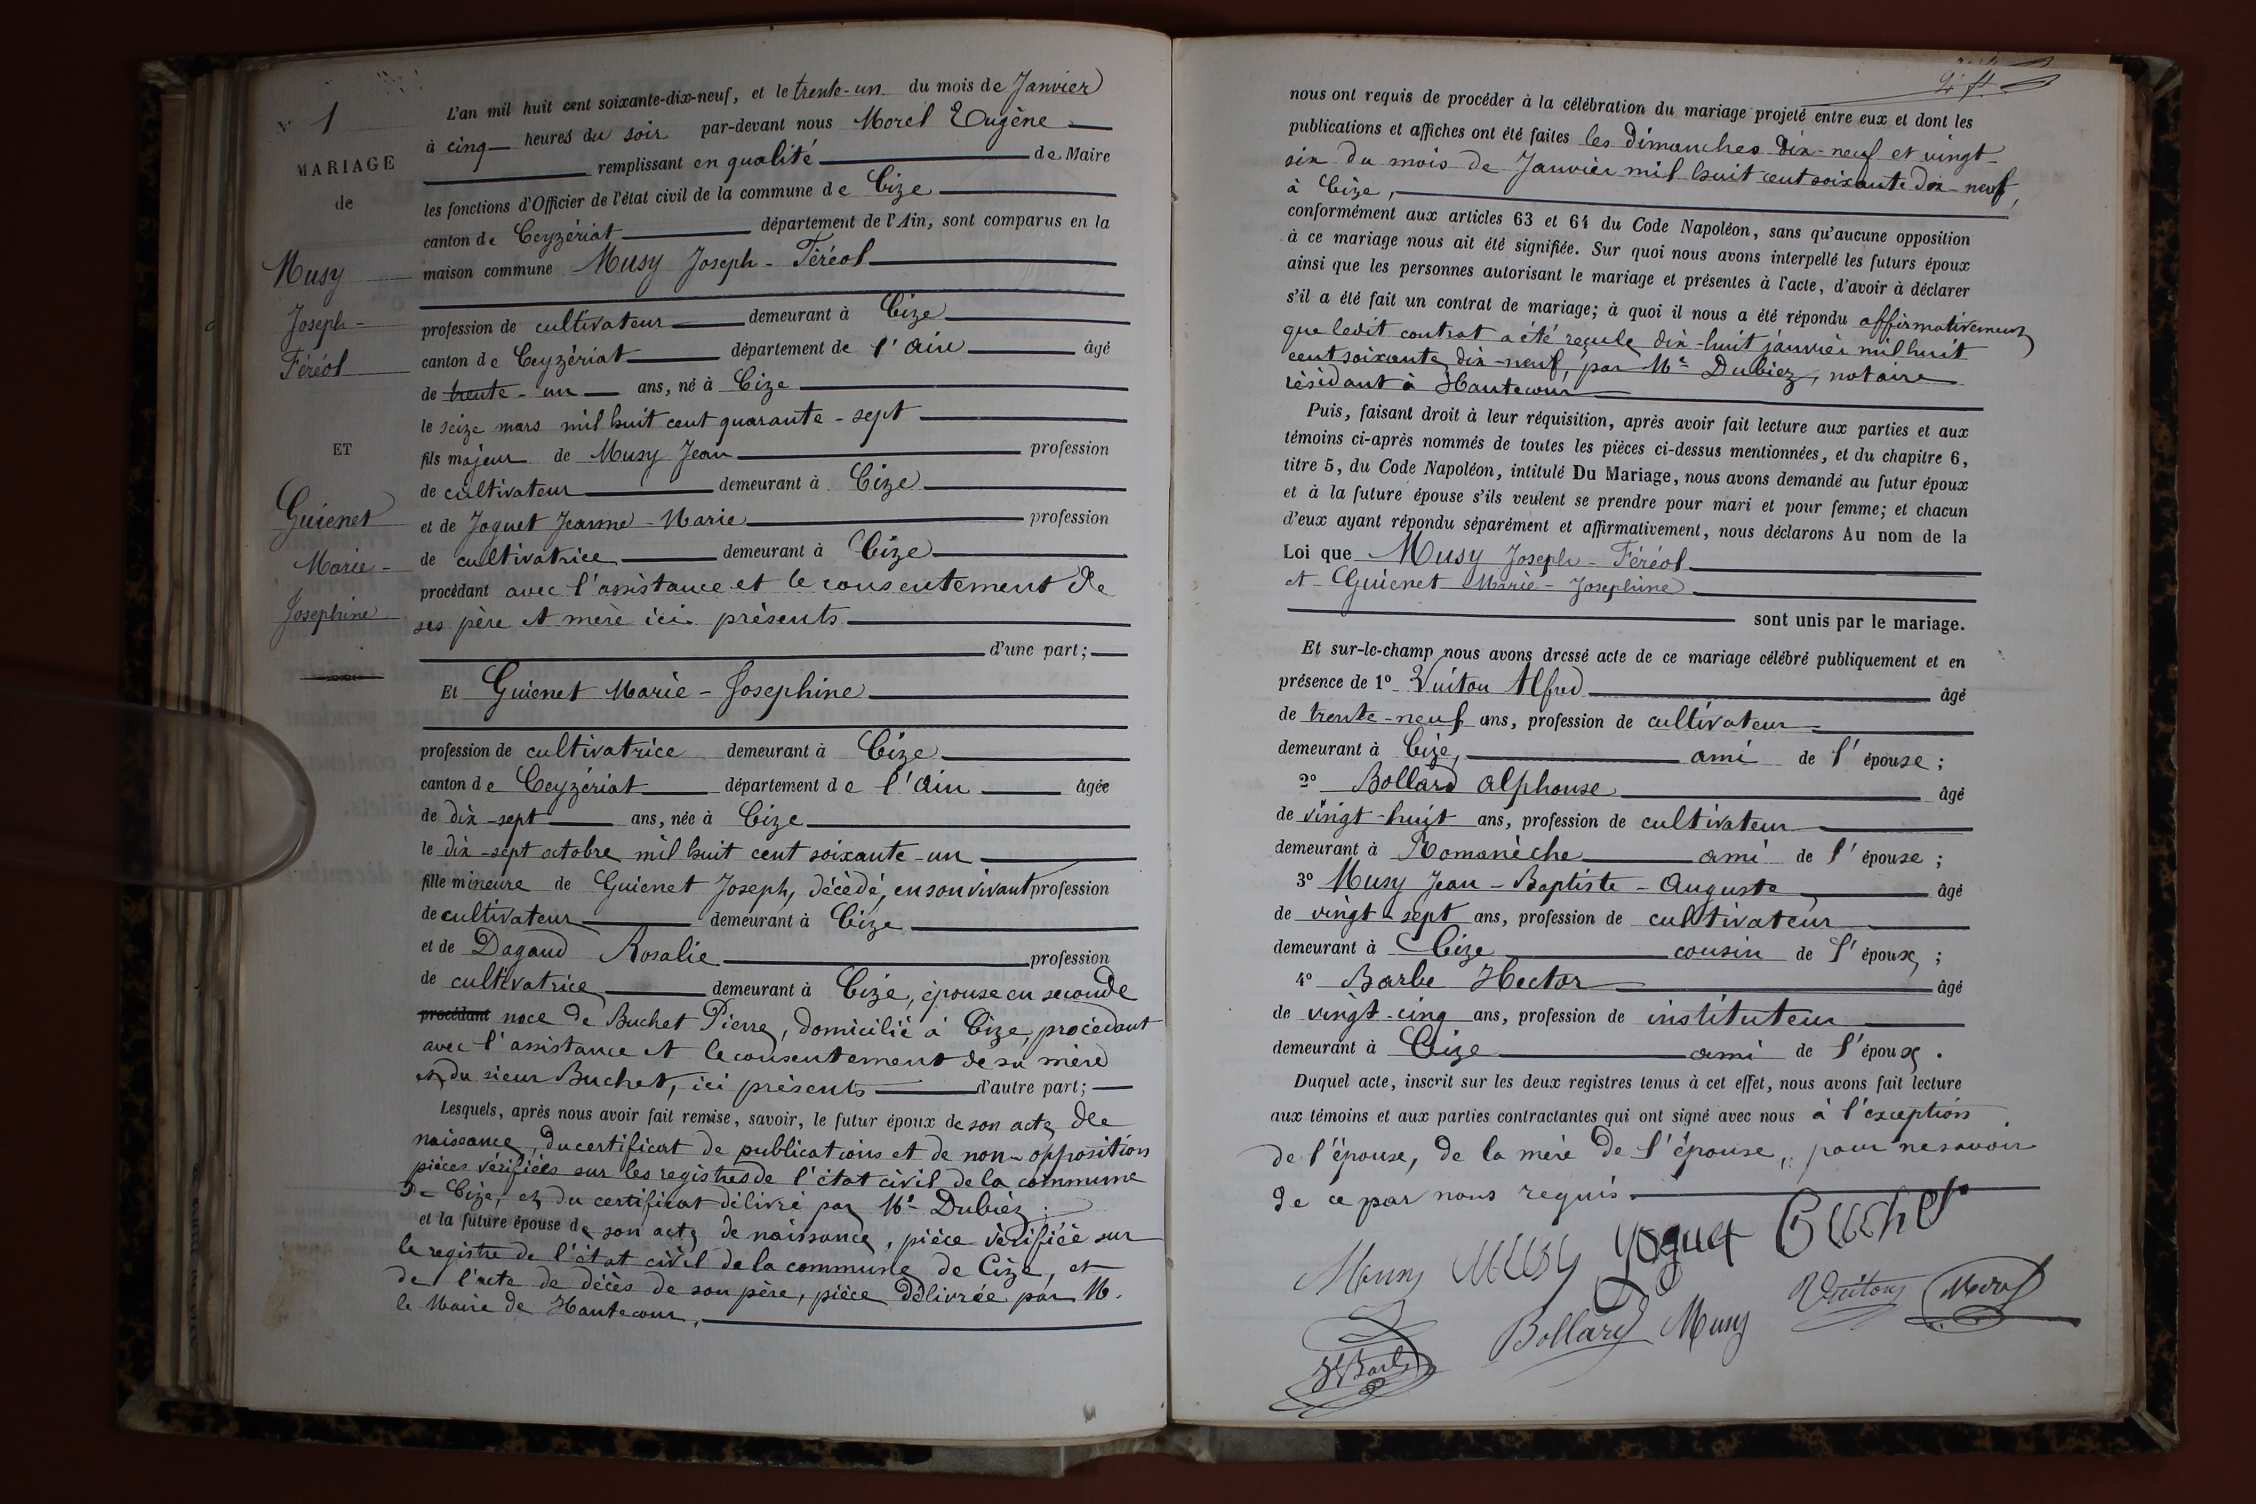 N° 1
MARIAGE
de
Musy
Joseph-
Féréol
ET
Guienet
Marie-
Josephine
L'an mil huit cent soixante-dix-neuf, et le trente-un du mois de Janvier
à cinq heures du soir par-devant nous Morel Eugène
remplissant en qualité de Maire
les fonctions d'Officier de l'état civil de la commune de Cize
canton de Ceyzériat département de l'Ain, sont comparus en la
maison commune Musy Joseph-Féréol
profession de cultivateur demeurant à Cize
canton de Ceyzériat département de l'Ain âgé
de trente-un ans, né à Cize
le seize mars mil huit cent quarante-sept
fils majeur de Musy Jean profession
de cultivateur demeurant à Cize
et de Joguet Jeanne-Marie profession
de cultivatrice demeurant à Cize
procédant avec l'assistance et le consentement de
ses père et mère ici présents
d'une part;
Et Guienet Marie-Josephine
profession de cultivatrice demeurant à Cize
canton de Ceyzériat département de l'Ain âgée
de dix-sept ans, née à Cize
le dix-sept octobre mil huit cent soixante-un
fille mineure de Guienet Joseph, décédé, en son vivant profession
de cultivateur demeurant à Cize
et de Dagaud Rosalie profession
de cultivatrice demeurant à Cize, épouse en seconde
procédant noce de Buchet Pierre, domicilié à Cize, procédant
avec l'assistance et le consentement de sa mère
et du sieur Buchet, ici présents d'autre part;
Lesquels, après nous avoir fait remise, savoir, le futur époux de son acte de
naissance, du certificat de publications et de non-opposition
pièces vérifiées sur les registres de l'état civil de la commune
de Cize, et du certificat délivré par Me Dubiez;
et la future épouse de son acte de naissance, pièce vérifiée sur
le registre de l'état civil de la commune de Cize, et
de l'acte de décès de son père, pièce délivrée par M.
le Maire de Hautecour,
nous ont requis de procéder à la célébration du mariage projeté entre eux et dont les
publications et affiches ont été faites les dimanches dix-neuf et vingt-
six du mois de Janvier mil huit cent soixante dix-neuf,
à Cize,
conformément aux articles 63 et 64 du Code Napoléon, sans qu'aucune opposition
à ce mariage nous ait été signifiée. Sur quoi nous avons interpellé les futurs époux
ainsi que les personnes autorisant le mariage et présentes à l'acte, d'avoir à déclarer
s'il a été fait un contrat de mariage; à quoi il nous a été répondu affirmativement
que ledit contrat a été reçu le dix-huit janvier mil huit
cent soixante dix-neuf, par Me Dubiez, notaire
résidant à Hautecour
Puis, faisant droit à leur réquisition, après avoir fait lecture aux parties et aux
témoins ci-après nommés de toutes les pièces ci-dessus mentionnées, et du chapitre 6,
titre 5, du Code Napoléon, intitulé Du Mariage, nous avons demandé au futur époux
et à la future épouse s'ils veulent se prendre pour mari et pour femme; et chacun
d'eux ayant répondu séparément et affirmativement, nous déclarons Au nom de la
Loi que Musy Joseph-Féréol
et Guienet Marie-Josephine
sont unis par le mariage.
Et sur-le-champ nous avons dressé acte de ce mariage célébré publiquement et en
présence de 1° Vuitou Alfred âgé
de trente-neuf ans, profession de cultivateur
demeurant à Cize, ami de l'épouse;
2° Bollard Alphonse âgé
de vingt-huit ans, profession de cultivateur
demeurant à Romanèche ami de l'épouse;
3° Musy Jean-Baptiste-Auguste âgé
de vingt-sept ans, profession de cultivateur
demeurant à Cize cousin de l'époux;
4° Barbe Hector âgé
de vingt-cinq ans, profession de instituteur
demeurant à Cize ami de l'époux.
Duquel acte, inscrit sur les deux registres tenus à cet effet, nous avons fait lecture
aux témoins et aux parties contractantes qui ont signé avec nous à l'exception
de l'épouse, de la mère de l'épouse, pour ne savoir
de ce par nous requis.
Musy Musy Yoguet Buchet
Bollard Musy Vuitou Morel
H Barbe